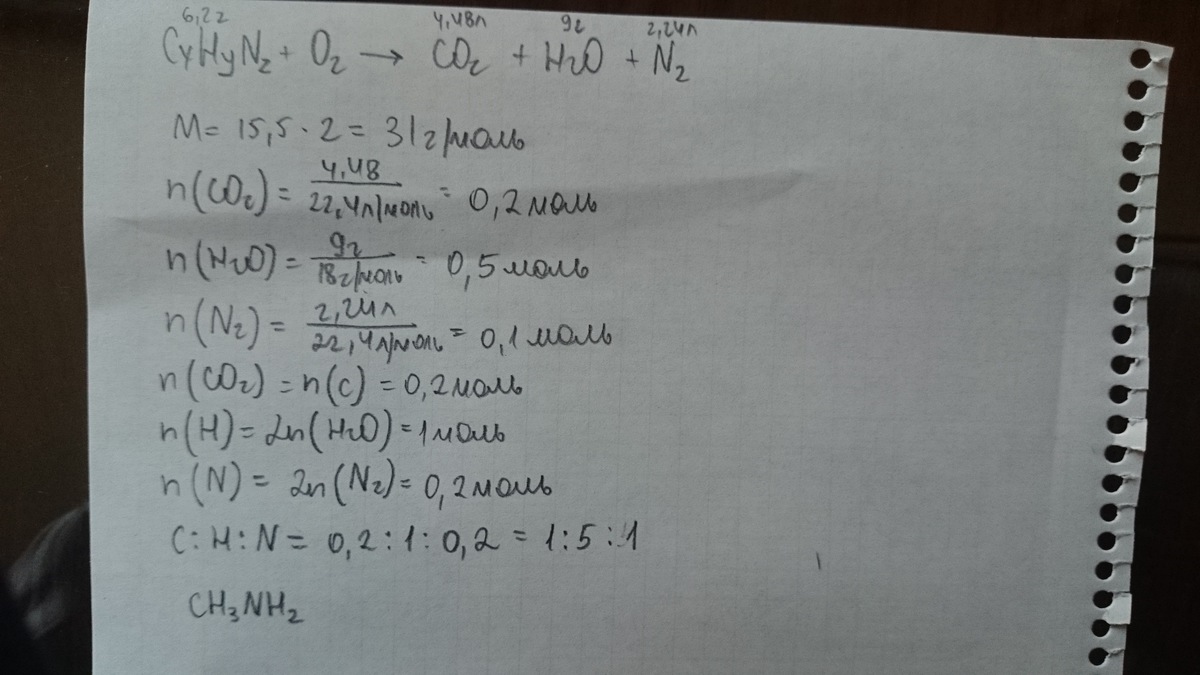 6,2г 4,48л 9г 2,24л
CxHyNz + O2 → CO2 + H2O + N2
M = 15,5 · 2 = 31 г/моль
n(CO2) = 4,48 / 22,4л/моль = 0,2 моль
n(H2O) = 9г / 18г/моль = 0,5 моль
n(N2) = 2,24л / 22,4л/моль = 0,1 моль
n(CO2) = n(C) = 0,2 моль
n(H) = 2n(H2O) = 1 моль
n(N) = 2n(N2) = 0,2 моль
C:H:N = 0,2:1:0,2 = 1:5:1
CH3NH2